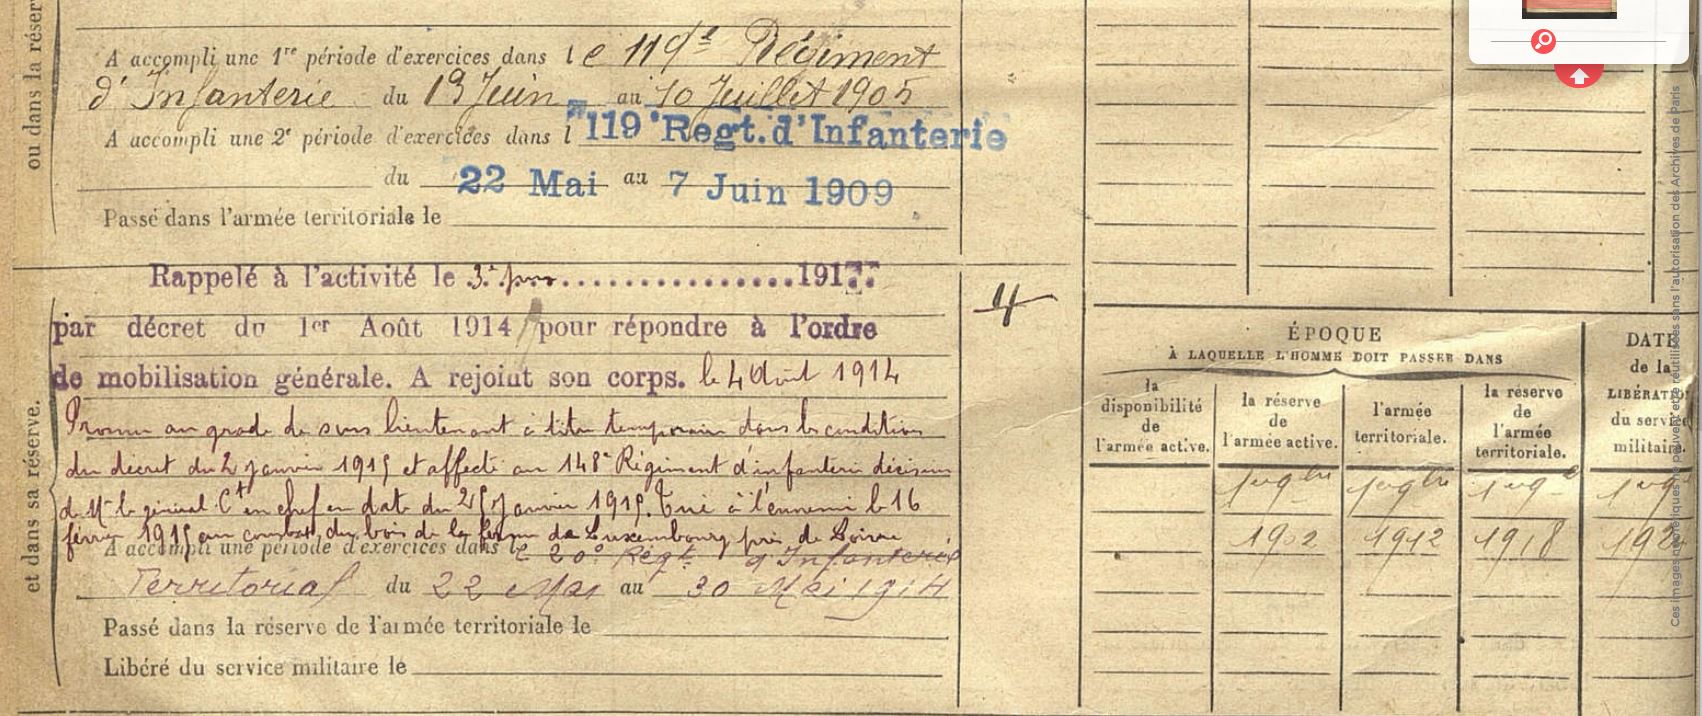 ou dans la réser
A accompli une 1re période d'exercices dans le 119e Régiment
d'Infanterie du 13 Juin au 10 Juillet 1905
A accompli une 2e période d'exercices dans l 119e Regt. d'Infanterie
du 22 Mai au 7 Juin 1909
Passé dans l'armée territoriale le
et dans sa réserve.
Rappelé à l'activité le 3e jour 191
par décret du 1er Août 1914 pour répondre à l'ordre
de mobilisation générale. A rejoint son corps. le 4 Août 1914
Promu au grade de sous lieutenant à titre temporaire dans les conditions
du décret du 2 janvier 1915 et affecté au 148e Régiment d'infanterie décision
de Mr le général Ct en chef en date du 25 janvier 1915. Tué à l'ennemi le 16
février 1915 au combat du bois de la ferme du Luxembourg près de Loivre
A accompli une période d'exercices dans le 20e Régt d'Infanterie
Territorial du 22 Mai au 30 Mai 1914
Passé dans la réserve de l'armée territoriale le
Libéré du service militaire le
4
ÉPOQUE
À LAQUELLE L'HOMME DOIT PASSER DANS
la disponibilité de l'armée active.
la réserve de l'armée active.
l'armée territoriale.
la réserve de l'armée territoriale.
DATE de la LIBÉRATIO du service militaire.
1902 1912 1918
Ces images numériques ne peuvent être réutilisées sans l'autorisation des Archives de Paris